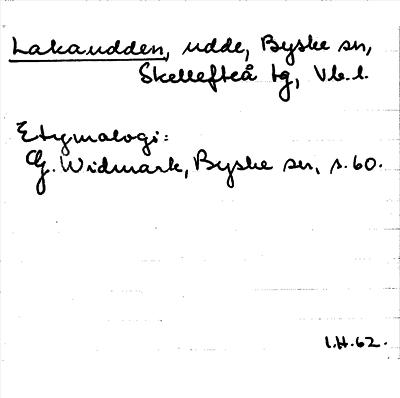 Lakaudden, udde, Byske sn,
Skellefteå tg, Vb.l.
Etymologi:
G. Widmark, Byske sn, s. 60.
I.H. 62.